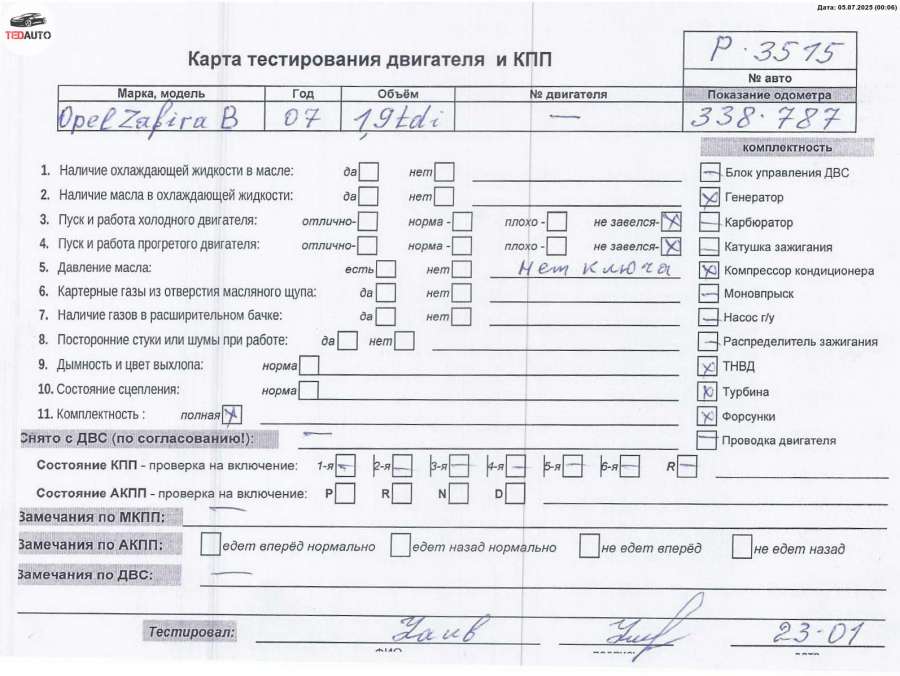 Дата: 05.07.2025 (00:06)
TEDAUTO
Карта тестирования двигателя и КПП
Р-3515
№ авто
Марка, модель Год Объём № двигателя Показание одометра
Opel Zafira B 07 1,9tdi — 338.787
комплектность
1. Наличие охлаждающей жидкости в масле: да нет
Блок управления ДВС
2. Наличие масла в охлаждающей жидкости: да нет
Генератор
3. Пуск и работа холодного двигателя: отлично- норма - плохо - не завелся-
Карбюратор
4. Пуск и работа прогретого двигателя: отлично- норма - плохо - не завелся-
Катушка зажигания
5. Давление масла: есть нет Нет ключа
Компрессор кондиционера
6. Картерные газы из отверстия масляного щупа: да нет
Моновпрыск
7. Наличие газов в расширительном бачке: да нет
Насос г/у
8. Посторонние стуки или шумы при работе: да нет
Распределитель зажигания
9. Дымность и цвет выхлопа: норма
ТНВД
10. Состояние сцепления: норма
Турбина
11. Комплектность : полная
Форсунки
Снято с ДВС (по согласованию!): —
Проводка двигателя
Состояние КПП - проверка на включение: 1-я 2-я 3-я 4-я 5-я 6-я R
Состояние АКПП - проверка на включение: P R N D
Замечания по МКПП: —
Замечания по АКПП: едет вперёд нормально едет назад нормально не едет вперёд не едет назад
Замечания по ДВС: —
Тестировал: 23-01
ФИО подпись дата